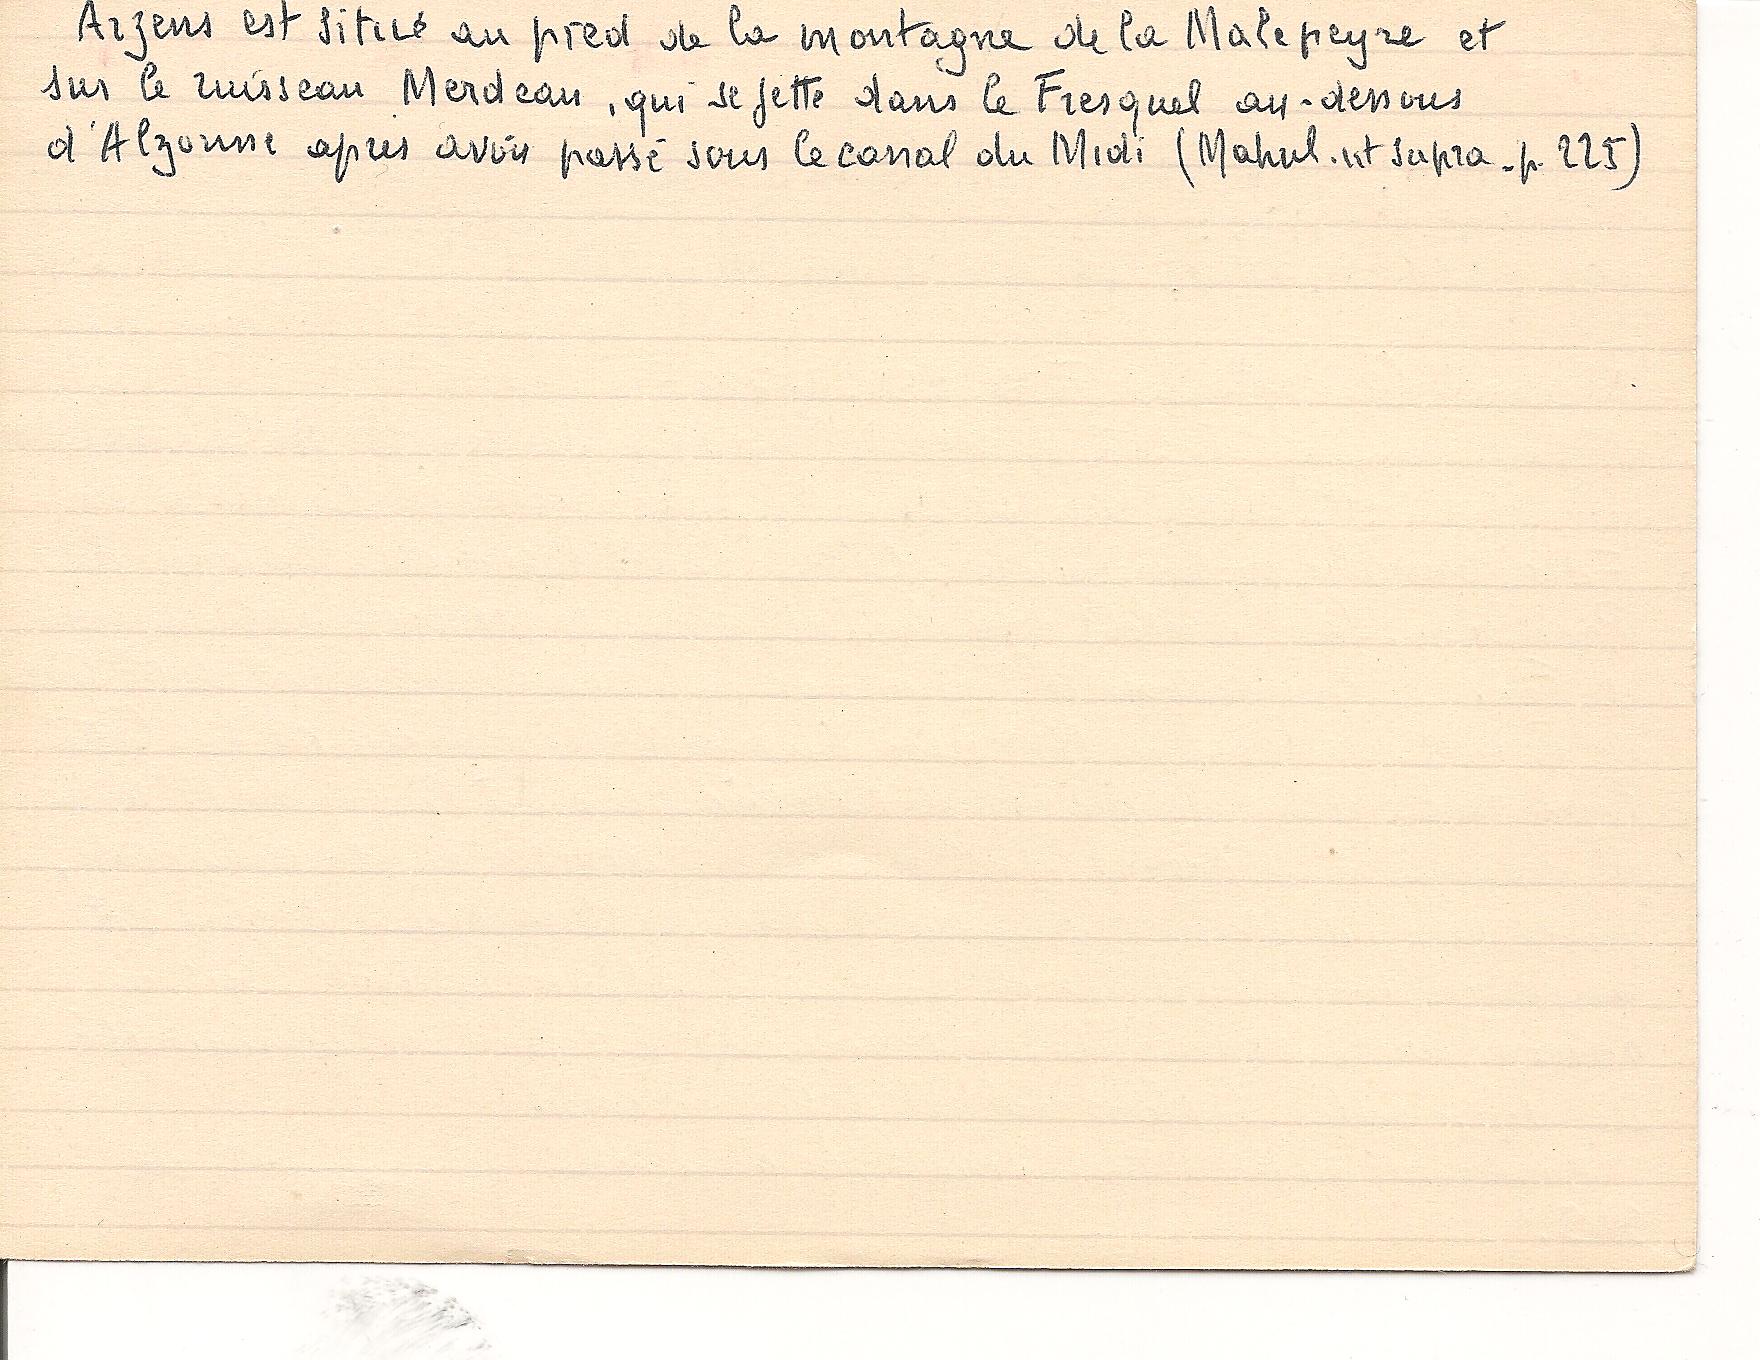 Arzens est situé au pied de la montagne de la Malepeyre et
sur le ruisseau Merdeau, qui se jette dans le Fresquel au-dessous
d'Alzonne apres avoir passé sous le canal du Midi (Mahul. ut supra - p. 225)